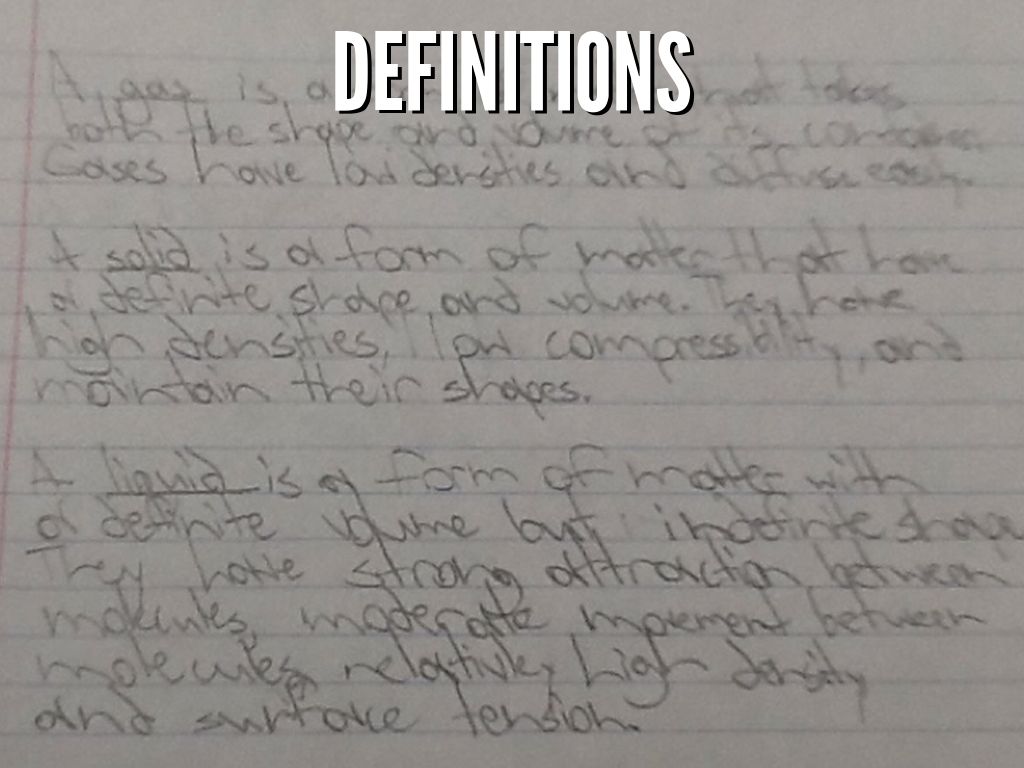 DEFINITIONS
A gas is a that takes
both the shape and volume of its container.
Gases have low densities and diffuse easily.
A solid is a form of matter that have
a definite shape and volume. They have
high densities, low compressibility, and
maintain their shapes.
A liquid is a form of matter with
a definite volume but indefinite shape
They have strong attraction between
molecules, moderate movement between
molecules, relatively high density
and surface tension.